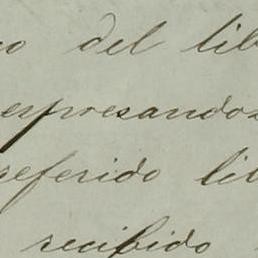 o del lib
espresandos
referido lib
recibido